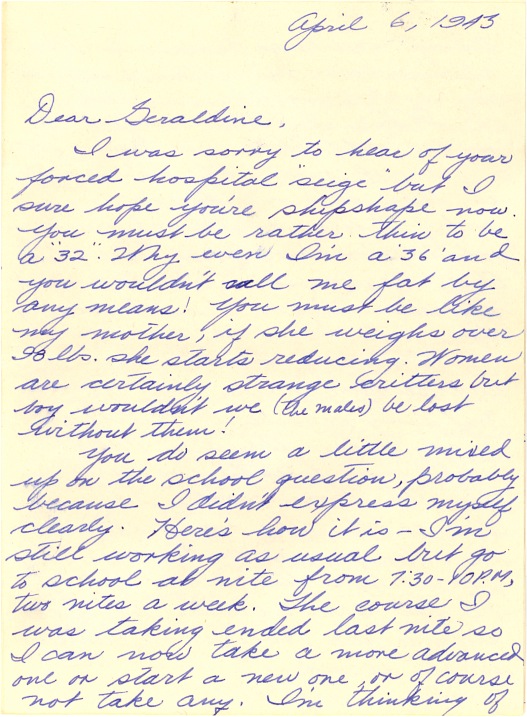 April 6, 1943
Dear Geraldine,
I was sorry to hear of your
forced hospital "seige" but I
sure hope you're shipshape now.
You must be rather thin to be
a "32". Why even I'm a "36" and
you wouldn't call me fat by
any means! You must be like
my mother, if she weighs over
98 lbs. she starts reducing. Women
are certainly strange critters but
boy wouldn't we (the males) be lost
without them!
You do seem a little mixed
up on the school question, probably
because I didn't express myself
clearly. Here's how it is - I'm
still working as usual but go
to school at nite from 7:30-10 P.M,
two nites a week. The course I
was taking ended last nite so
I can now take a more advanced
one or start a new one, or of course
not take any. I'm thinking of